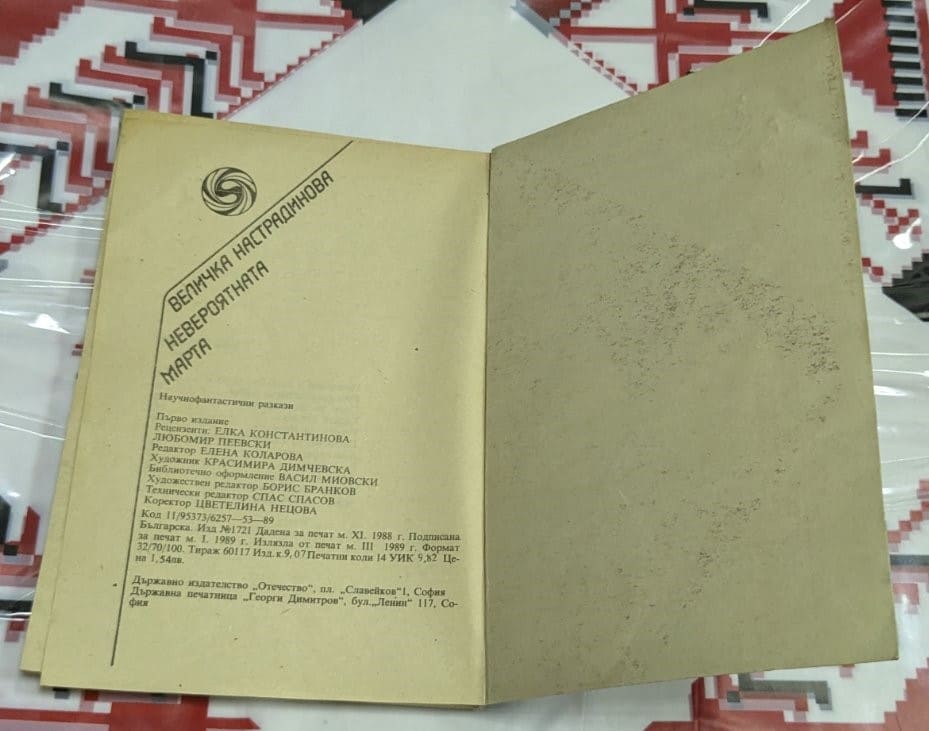 ВЕЛИЧКА НАСТРАДИНОВА
НЕВЕРОЯТНАТА
МАРТА
Научнофантастични разкази
Първо издание
Рецензенти: ЕЛКА КОНСТАНТИНОВА
ЛЮБОМИР ПЕЕВСКИ
Редактор ЕЛЕНА КОЛАРОВА
Художник КРАСИМИРА ДИМЧЕВСКА
Библиотечно оформление ВАСИЛ МИОВСКИ
Художествен редактор БОРИС БРАНКОВ
Технически редактор СПАС СПАСОВ
Коректор ЦВЕТЕЛИНА НЕЦОВА
Код 11/95373/6257—53—89
Българска. Изд №1721 Дадена за печат м. XI. 1988 г. Подписана
за печат м. I. 1989 г. Излязла от печат м. III 1989 г. Формат
32/70/100. Тираж 60117 Изд. к. 9,07 Печатни коли 14 УИК 9,82 Це-
на 1,54лв.
Държавно издателство „Отечество“, пл. „Славейков“1, София
Държавна печатница „Георги Димитров“, бул.„Ленин“ 117, Со-
фия